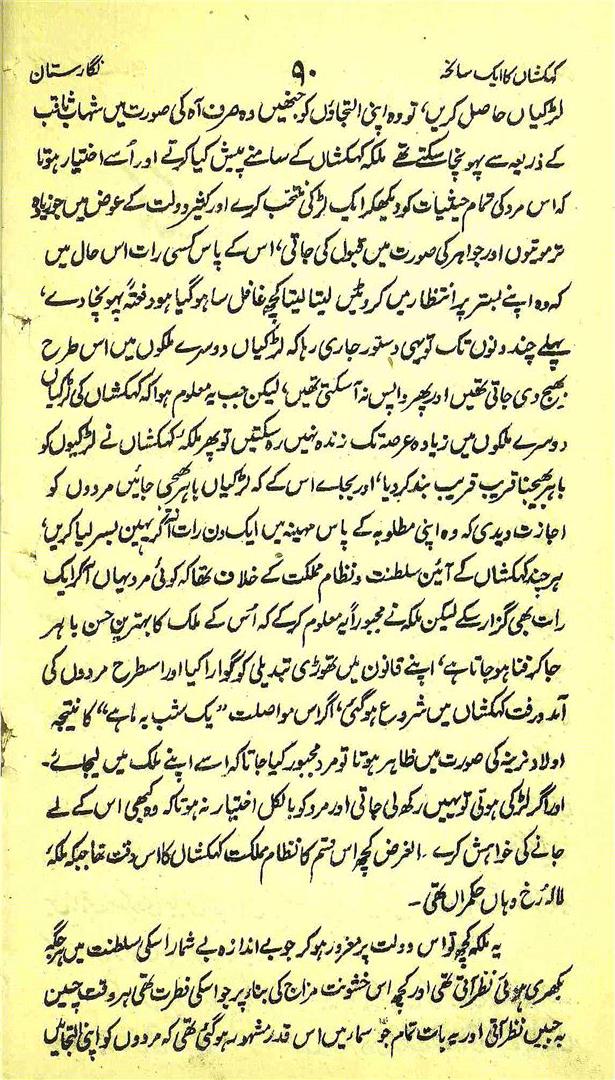 کہکشاں کا ایک سانحہ ۹۰ نگارستان
لڑکیاں حاصل کریں، تو وہ اپنی التجاؤں کو جنھیں وہ صرف آہ کی صورت میں شہاب ثاقب
کے ذریعہ سے پہونچا سکتے تھے ملکہ کہکشاں کے سامنے پیش کیا کرتے اور اُسے اختیار ہوتا
کہ اس مرد کی تمام حیثیات کو دیکھکر ایک لڑکی منتخب کرے اور کثیر دولت کے عوض میں جو زیادہ
تر موتیوں اور جواہر کی صورت میں قبول کی جاتی، اس کے پاس کسی رات اس حال میں
کہ وہ اپنے بستر پر انتظار میں کروٹیں لیتا لیتا کچھ غافل سا ہوگیا ہو دفعۃً پہونچا دے،
پہلے چند دنوں تک تو یہی دستور جاری رہا کہ لڑکیاں دوسرے ملکوں میں اس طرح
بھیج دی جاتی تھیں اور پھر واپس نہ آسکتی تھیں، لیکن جب یہ معلوم ہوا کہ کہکشاں کی لڑکیاں
دوسرے ملکوں میں زیادہ عرصہ تک زندہ نہیں رہ سکتیں تو پھر ملکۂ کہکشاں نے لڑکیوں کو
باہر بھیجنا قریب قریب بند کر دیا، اور بجاے اس کے کہ لڑکیاں باہر بھیجی جائیں مردوں کو
اجازت دیدی کہ وہ اپنی مطلوبہ کے پاس مہینہ میں ایک دن رات آکر یہیں بسر لیا کریں،
ہر چند کہکشاں کے آئین سلطنت و نظام مملکت کے خلاف تھا کہ کوئی مرد یہاں آکر ایک
رات بھی گزار سکے لیکن ملکہ نے مجبوراً یہ معلوم کرکے کہ اُس کے ملک کا بہترین حسن باہر
جاکر فنا ہو جاتا ہے، اپنے قانون میں تھوڑی تبدیلی کو گوارا کیا اور اسطرح مردوں کی
آمد ورفت کہکشاں میں شروع ہوگئی، اگر اس مواصلت "یک شب بہ ماہے" کا نتیجہ
اولاد نرینہ کی صورت میں ظاہر ہوتا تو مرد مجبور کیا جاتا کہ اسے اپنے ملک میں لیجائے۔
اور اگر لڑکی ہوتی تو یہیں رکھ لی جاتی اور مرد کو بالکل اختیار نہ ہوتا کہ وہ کبھی اس کے لے
جانے کی خواہش کرے۔ الغرض کچھ اس قسم کا نظام مملکت کہکشاں کا اس وقت تھا جبکہ ملکۂ
لالہ رُخ وہاں حکمراں تھی۔
یہ ملکہ کچھ تو اس دولت پر مغرور ہو کر جو بے اندازہ بے شمار اسکی سلطنت میں ہر جگہ
بکھری ہوئی نظر آتی تھی اور کچھ اس خشونت مزاج کی بناء پر جو اسکی فطرت تھی ہر وقت چیں
بہ جبیں نظر آتی اور یہ بات تمام جو سمار میں اس قدر مشہور ہوگئی تھی کہ مردوں کو اپنی التجائیں